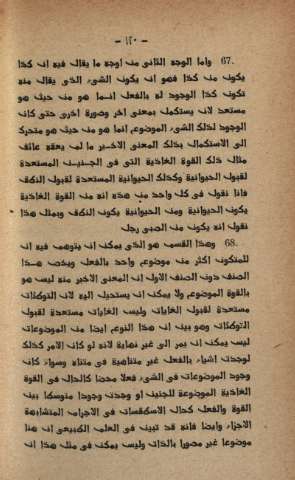 — ١٢٠ —
67. واما الوجه الثانى من اوجه ما يقال فيه ان كذا
يكون من كذا فهو ان يكون الشىء الذى يقال منه
تكون كذا الوجود له بالفعل انما هو من حيث هو
مستعد لان يستكمل بمعنى اخر وصورة اخرى حتى كان
الوجود لذلك الشىء الموضوع انما هو من حيث هو متحرك
الى الاستكمال بذلك المعنى الاخير ما لم يعقه عائق
مثال ذلك القوة الغاذية التى فى الجنين المستعدة
لقبول الحيوانية وكذلك الحيوانية المستعدة لقبول النطق
فانا نقول فى كل واحد من هذه انه من القوة الغاذية
يكون الحيوانية ومن الحيوانية يكون النطق وبمثل هذا
نقول انه يكون من الصبى رجل
68. وهذا القسم هو الذى يمكن ان يتوهم فيه ان
للمتكون اكثر من موضوع واحد بالفعل ويخص هذا
الصنف دون الصنف الاول ان المعنى الاخير منه ليس هو
بالقوة الموضوع ولا يمكن ان يستحيل اليه لان التوطئات
مستعدة لقبول الغايات وليس الغايات مستعدة لقبول
التوطئات وهو بين ان هذا النوع ايضا من الموضوعات
ليس يمكن ان يمر الى غير نهاية لانه لو كان الامر كذلك
لوجدت اشياء بالفعل غير متناهية فى متناه وسواء كان
وجود الموضوعات فى الشىء فعلا محضا كالحال فى القوة
الغاذية الموضوعة للجنين او وجدت وجودا متوسطا بين
القوة والفعل كحال الاسطقسات فى الاجرام المتشابهة
الاجزاء وايضا فانه قد تبين فى العلم الطبيعى ان هنا
موضوعا غير مصورا بالذات وليس يمكن فى مثل هذا ان